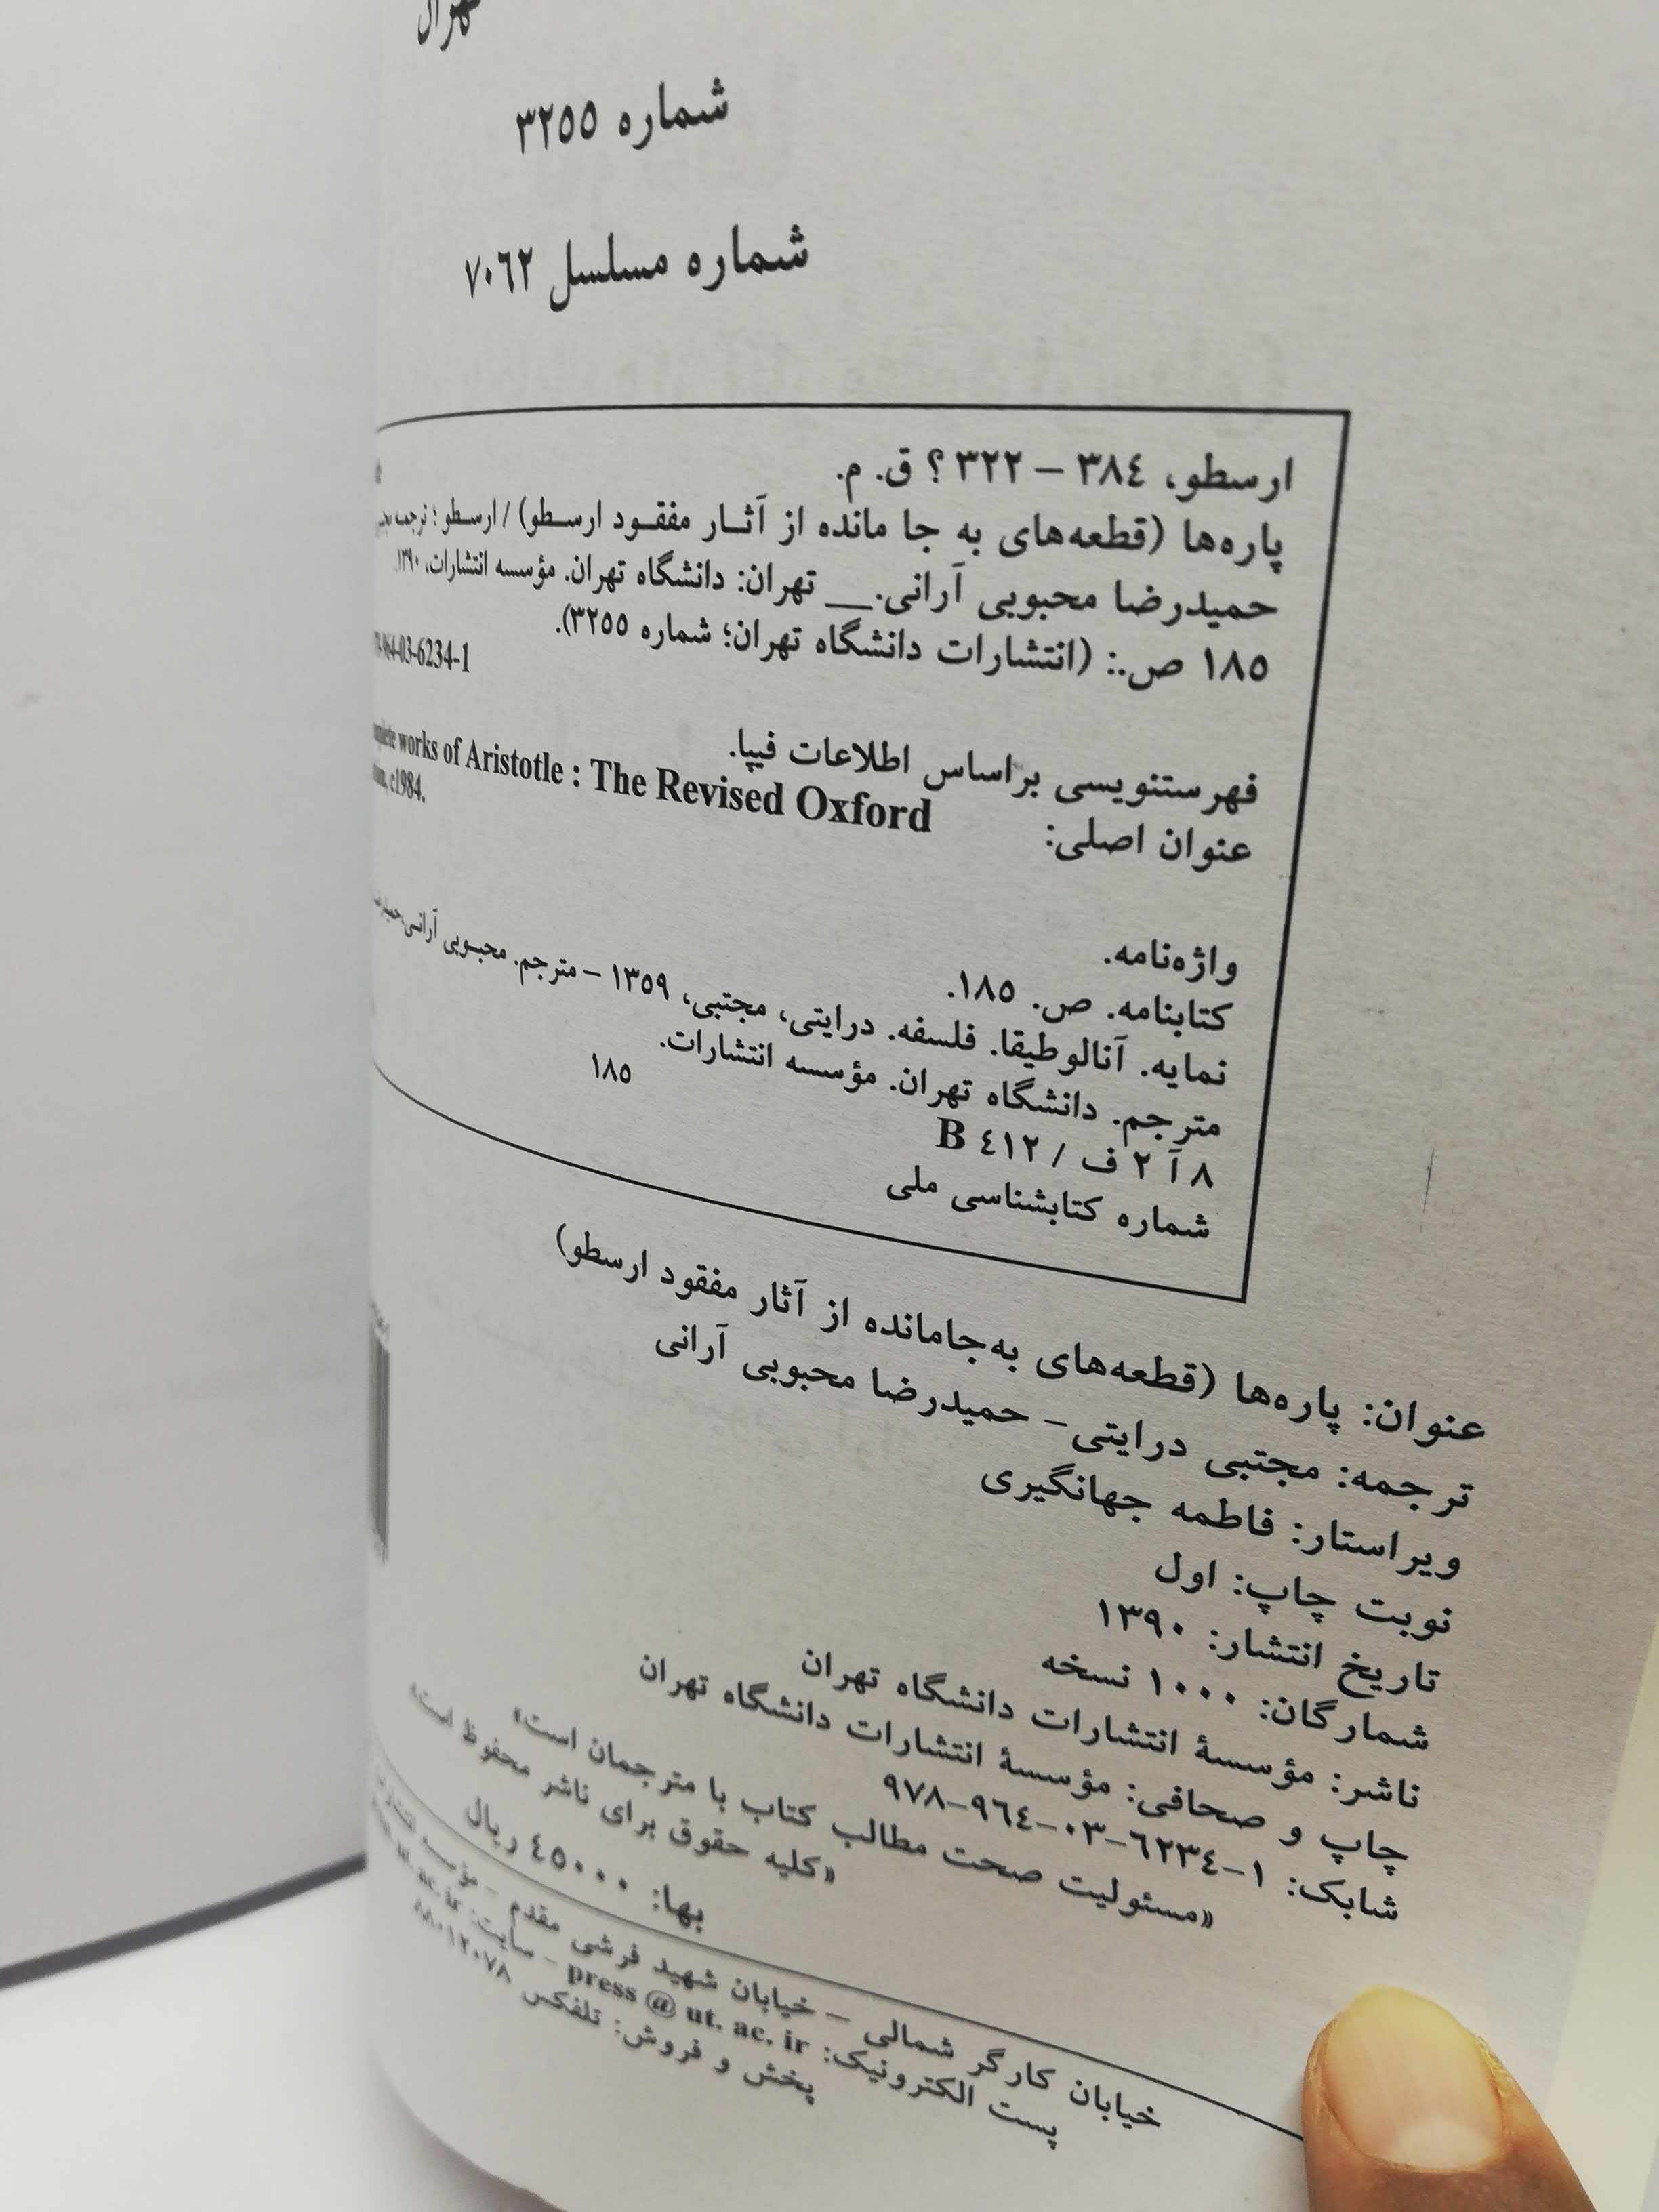 شماره ۳۲۵۵
شماره مسلسل ۷۰۶۲
ارسطو، ۳۸٤ – ۳۲۲ ؟ ق. م.
پاره‌ها (قطعه‌های به جا مانده از آثـار مفقـود ارسـطو) / ارسـطو ؛ ترجمه
حمیدرضا محبوبی آرانی.__ تهران: دانشگاه تهران. مؤسسه انتشارات، ۱۳۹۰.
۱۸۵ ص.: (انتشارات دانشگاه تهران؛ شماره ۳۲۵۵).
-964-03-6234-1
فهرستنویسی براساس اطلاعات فیپا.
عنوان اصلی: works of Aristotle : The Revised Oxford
c1984.
واژه‌نامه.
کتابنامه. ص. ۱۸۵.
نمایه. آنالوطیقا. فلسفه. درایتی، مجتبی، ۱۳۵۹ – مترجم. محبـوبی آرانـی،
مترجم. دانشگاه تهران. مؤسسه انتشارات.
۸ آ ۲ ف / ٤۱۲ B ۱۸۵
شماره کتابشناسی ملی
عنوان: پاره‌ها (قطعه‌های به‌جامانده از آثار مفقود ارسطو)
ترجمه: مجتبی درایتی- حمیدرضا محبوبی آرانی
ویراستار: فاطمه جهانگیری
نوبت چاپ: اول
تاریخ انتشار: ۱۳۹۰
شمارگان: ۱۰۰۰ نسخه
ناشر: مؤسسهٔ انتشارات دانشگاه تهران
چاپ و صحافی: مؤسسهٔ انتشارات دانشگاه تهران
شابک: ۱-٦۲۳٤-۰۳-۹٦٤-۹۷۸
«مسئولیت صحت مطالب کتاب با مترجمان است»
«کلیه حقوق برای ناشر محفوظ است»
بها: ٤۵۰۰۰ ریال
خیابان کارگر شمالی – خیابان شهید فرشی مقدم – مؤسسه
پست الکترونیک: press @ ut. ac. ir – سایت: ut. ac. ir
پخش و فروش: تلفکس ۸۸۰۱۲۰۷۸